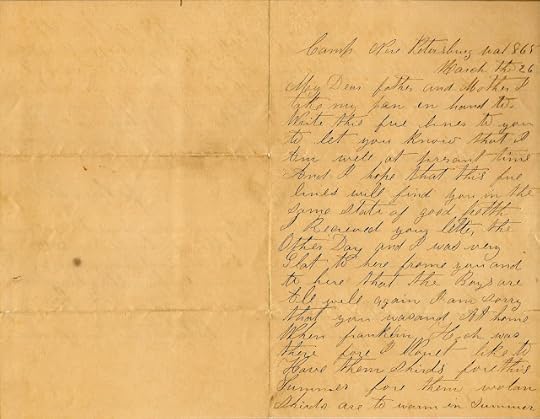 Camp Nere Petersburg va 1865
March the 26
My Dear father and Mother I
take my pan en hand to
Write this fue lines to you
to let you Know that I
Am well at present time
And I hope that this fue
lines will find you in the
same State of good helth
I Recieved your letter the
Other Day and I was very
Glat to here frome you and
to here that the Boys are
all well again I am sorry
that you wasand At home
When franklin was
there fore I like to
Have them Shirds fore this
Summer fore them wolan
Shirds are to warm in Summer